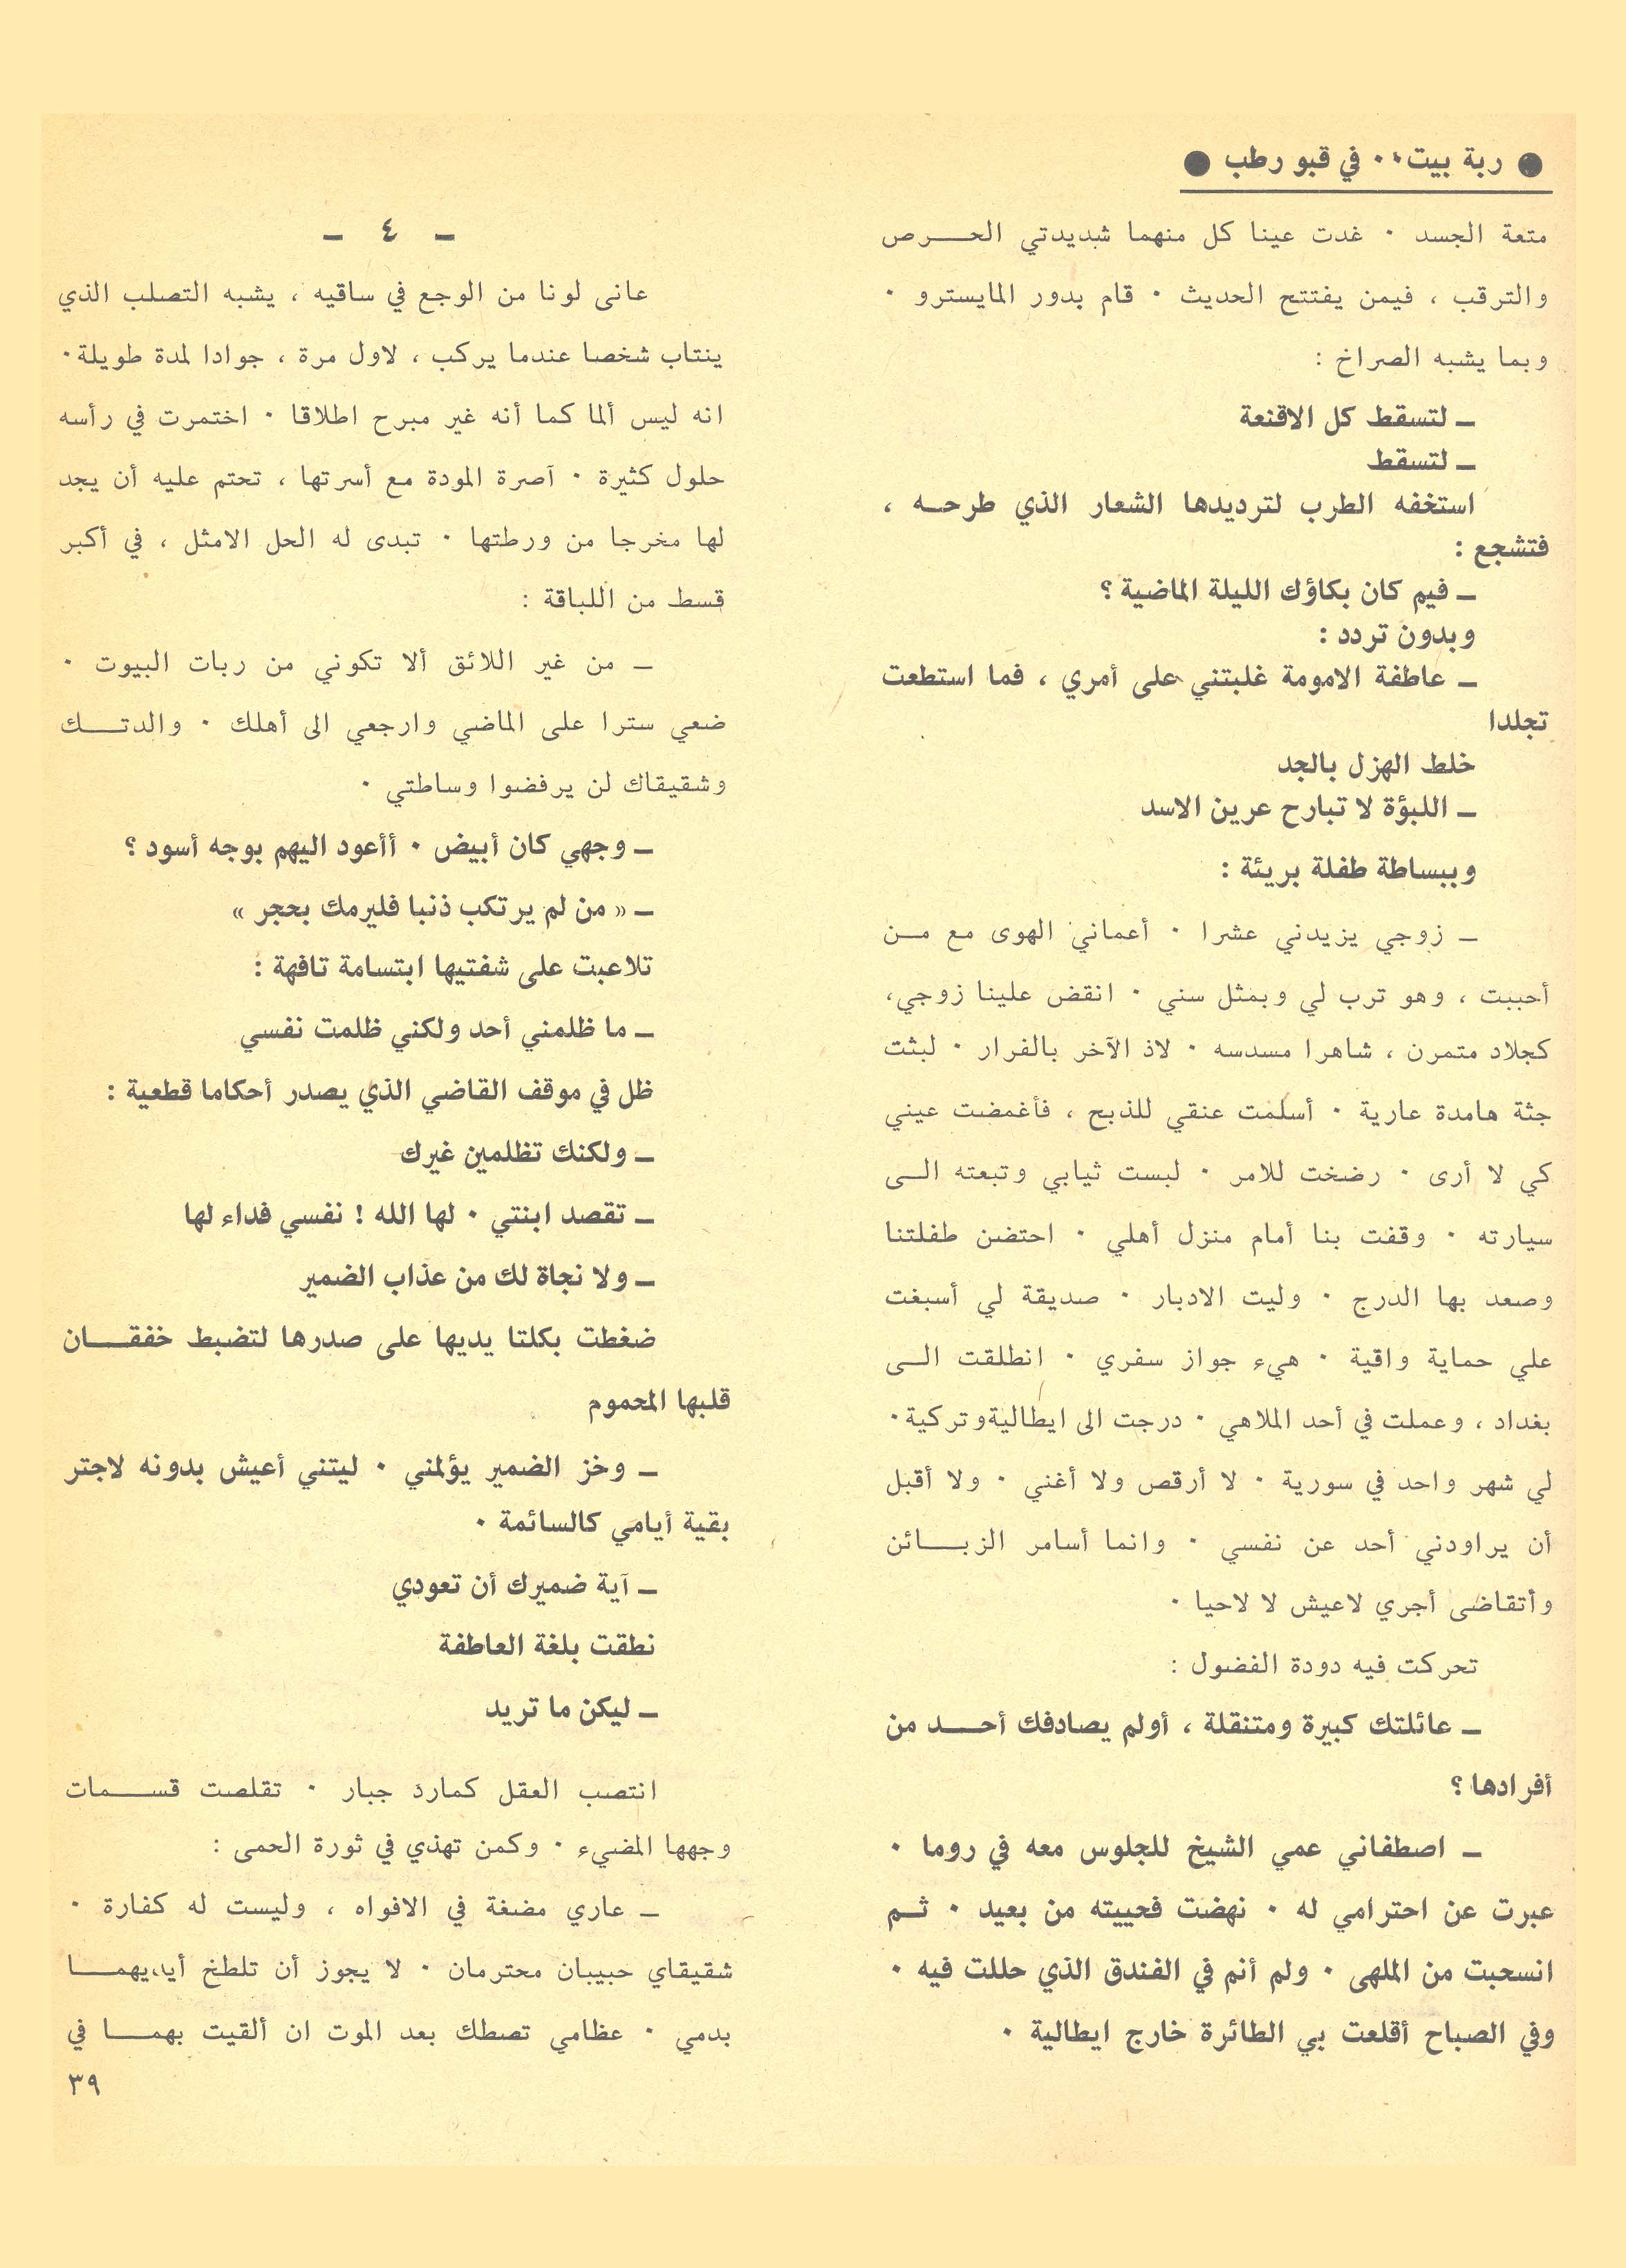 ● ربة بيت٠٠ في قبو رطب ●
متعة الجسد ٠ غدت عينا كل منهما شديدتي الحــرص
والترقب ، فيمن يفتتح الحديث ٠ قام بدور المايسترو ٠
وبما يشبه الصراخ :
ـ لتسقط كل الاقنعة
ـ لتسقط
استخفه الطرب لترديدها الشعار الذي طرحــه ،
فتشجع :
ـ فيم كان بكاؤك الليلة الماضية ؟
وبدون تردد :
ـ عاطفة الامومة غلبتني على أمري ، فما استطعت
تجلدا
خلط الهزل بالجد
ـ اللبؤة لا تبارح عرين الاسد
وببساطة طفلة بريئة :
ـ زوجي يزيدني عشرا ٠ أعماني الهوى مع مــن
أحببت ، وهو ترب لي وبمثل سني ٠ انقض علينا زوجي،
كجلاد متمرن ، شاهرا مسدسه ٠ لاذ الآخر بالفرار ٠ لبثت
جثة هامدة عارية ٠ أسلمت عنقي للذبح ، فأغمضت عيني
كي لا أرى ٠ رضخت للامر ٠ لبست ثيابي وتبعته الــى
سيارته ٠ وقفت بنا أمام منزل أهلي ٠ احتضن طفلتنا
وصعد بها الدرج ٠ وليت الادبار ٠ صديقة لي أسبغت
علي حماية واقية ٠ هيء جواز سفري ٠ انطلقت الــى
بغداد ، وعملت في أحد الملاهي ٠ درجت الى ايطالية وتركية ٠
لي شهر واحد في سورية ٠ لا أرقص ولا أغني ٠ ولا أقبل
أن يراودني أحد عن نفسي ٠ وانما أسامر الزبــائن
وأتقاضى أجري لاعيش لا لاحيا ٠
تحركت فيه دودة الفضول :
ـ عائلتك كبيرة ومتنقلة ، أولم يصادفك أحــد من
أفرادها ؟
ـ اصطفاني عمي الشيخ للجلوس معه في روما ٠
عبرت عن احترامي له ٠ نهضت فحييته من بعيد ٠ ثــم
انسحبت من الملهى ٠ ولم أنم في الفندق الذي حللت فيه ٠
وفي الصباح أقلعت بي الطائرة خارج ايطالية ٠
ـ ٤ ـ
عانى لونا من الوجع في ساقيه ، يشبه التصلب الذي
ينتاب شخصا عندما يركب ، لاول مرة ، جوادا لمدة طويلة ٠
انه ليس ألما كما أنه غير مبرح اطلاقا ٠ اختمرت في رأسه
حلول كثيرة ٠ آصرة المودة مع أسرتها ، تحتم عليه أن يجد
لها مخرجا من ورطتها ٠ تبدى له الحل الامثل ، في أكبر
قسط من اللباقة :
ـ من غير اللائق ألا تكوني من ربات البيوت ٠
ضعي سترا على الماضي وارجعي الى أهلك ٠ والدتــك
وشقيقاك لن يرفضوا وساطتي ٠
ـ وجهي كان أبيض ٠ أأعود اليهم بوجه أسود ؟
ـ « من لم يرتكب ذنبا فليرمك بحجر »
تلاعبت على شفتيها ابتسامة تافهة :
ـ ما ظلمني أحد ولكني ظلمت نفسي
ظل في موقف القاضي الذي يصدر أحكاما قطعية :
ـ ولكنك تظلمين غيرك
ـ تقصد ابنتي ٠ لها الله ! نفسي فداء لها
ـ ولا نجاة لك من عذاب الضمير
ضغطت بكلتا يديها على صدرها لتضبط خفقــان
قلبها المحموم
ـ وخز الضمير يؤلمني ٠ ليتني أعيش بدونه لاجتر
بقية أيامي كالسائمة ٠
ـ آية ضميرك أن تعودي
نطقت بلغة العاطفة
ـ ليكن ما تريد
انتصب العقل كمارد جبار ٠ تقلصت قســمات
وجهها المضيء ٠ وكمن تهذي في ثورة الحمى :
ـ عاري مضغة في الافواه ، وليست له كفارة ٠
شقيقاي حبيبان محترمان ٠ لا يجوز أن تلطخ أيديهمــا
بدمي ٠ عظامي تصطك بعد الموت ان ألقيت بهمــا في
٣٩